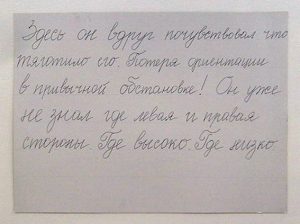 Здесь он вдруг почувствовал что
тяготило его. Потеря ориентации
в привычной обстановке! Он уже
не знал где левая и правая
стороны. Где высоко. Где низко